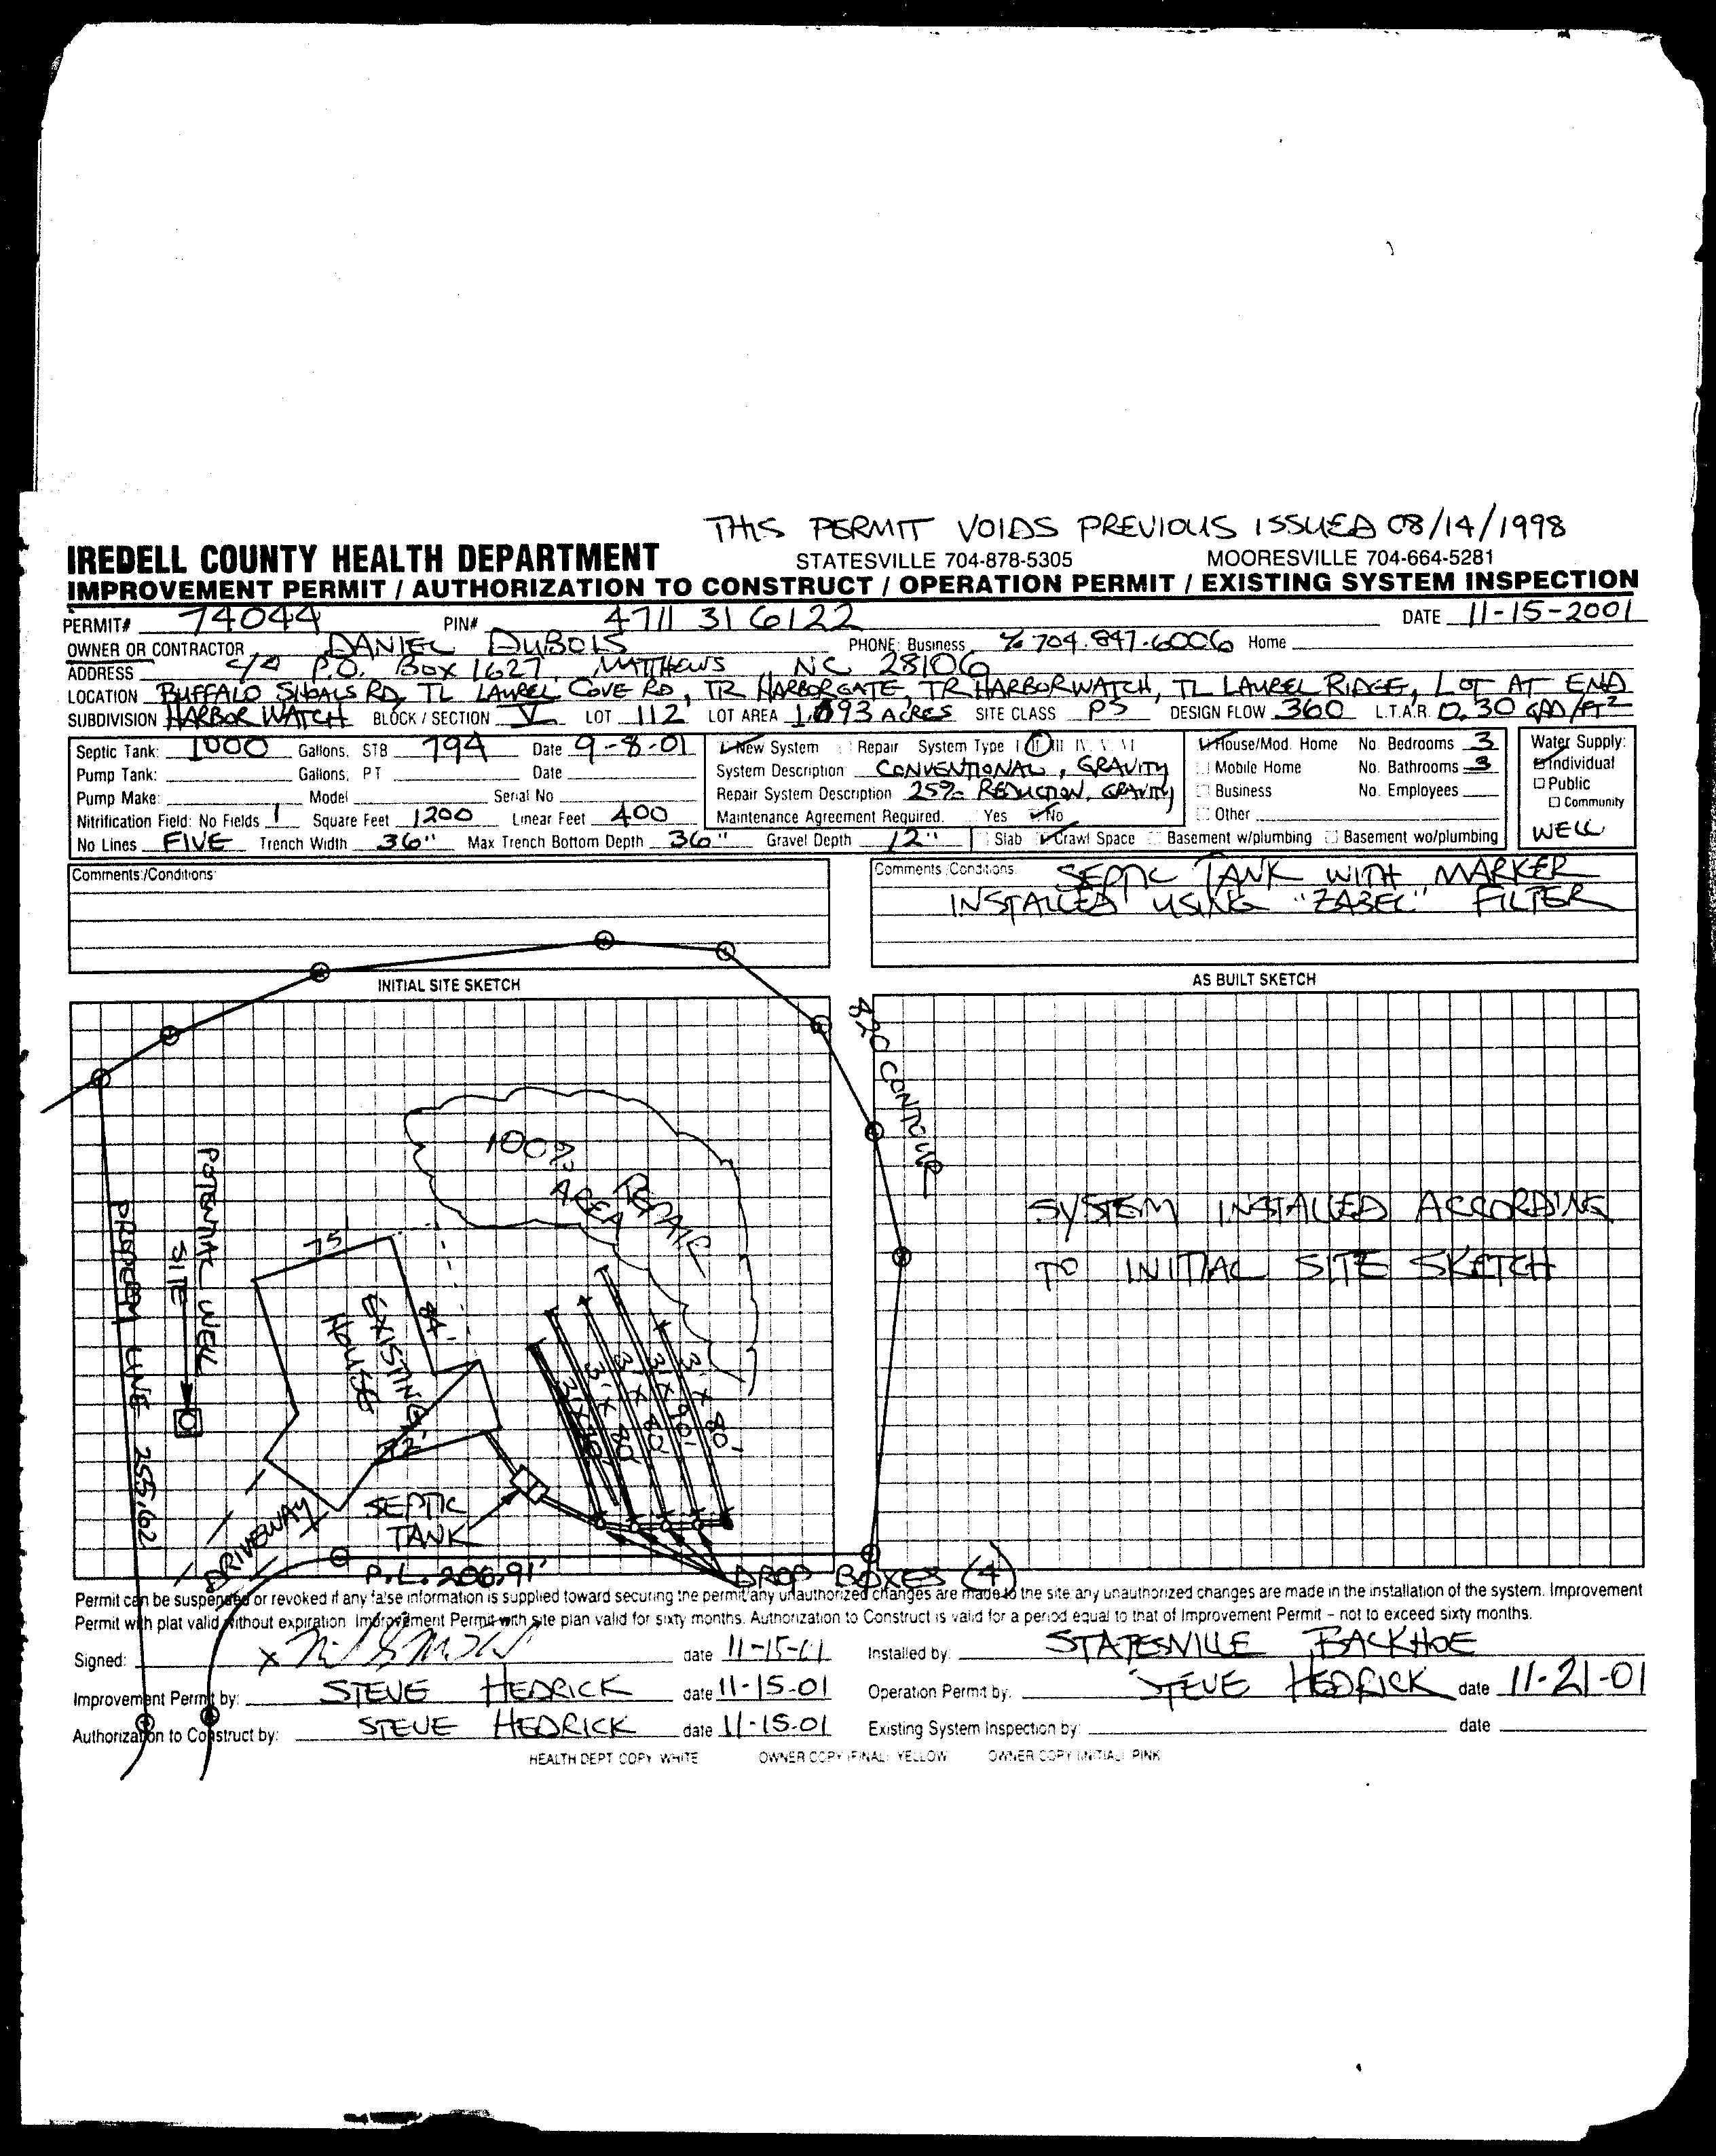 THIS PERMIT VOIDS PREVIOUS ISSUED 08/14/1998
IREDELL COUNTY HEALTH DEPARTMENT STATESVILLE 704-878-5305 MOORESVILLE 704-664-5281
IMPROVEMENT PERMIT / AUTHORIZATION TO CONSTRUCT / OPERATION PERMIT / EXISTING SYSTEM INSPECTION
PERMIT# 74044 PIN# 4711 31 6122 DATE 11-15-2001
OWNER OR CONTRACTOR DANIEL DUBOIS PHONE: Business % 704.847.6006 Home
ADDRESS P.O. BOX 1627, MATTHEWS, NC 28106
LOCATION BUFFALO SHOALS RD, TL LAUREL COVE RD, TR HARBORGATE, TR HARBORWATCH, TL LAUREL RIDGE, LOT AT END
SUBDIVISION HARBOR WATCH BLOCK / SECTION V LOT 112 LOT AREA 1.093 ACRES SITE CLASS PS DESIGN FLOW 360 L.T.A.R. 0.30 GPD/FT²
Septic Tank: 1000 Gallons, STB 794 Date 9-8-01 New System Repair System Type I II III IV V VI House/Mod. Home No. Bedrooms 3 Water Supply:
Pump Tank: Gallons, PT Date System Description CONVENTIONAL, GRAVITY Mobile Home No. Bathrooms 3 Individual
Pump Make: Model Serial No Repair System Description 25% REDUCTION, GRAVITY Business No. Employees Public
Nitrification Field: No Fields 1 Square Feet 1200 Linear Feet 400 Maintenance Agreement Required. Yes No Other Community
No Lines FIVE Trench Width 36" Max Trench Bottom Depth 36" Gravel Depth 12" Slab Crawl Space Basement w/plumbing Basement wo/plumbing WELL
Comments:/Conditions:
Comments:/Conditions: SEPTIC TANK WITH MARKER
INSTALLED USING "ZABEL" FILTER
INITIAL SITE SKETCH
AS BUILT SKETCH
820 CONTOUR
100% REPAIR
AREA
POTENTIAL WELL
SITE
PROPERTY LINE 255.62
75'
84'
EXISTING
HOUSE
72'
3' X 80'
3' X 80'
3' X 80'
3' X 80'
3' X 80'
SYSTEM INSTALLED ACCORDING
TO INITIAL SITE SKETCH
SEPTIC
TANK
DRIVEWAY
P.L. 206.91'
DROP BOXES (4)
Permit can be suspended or revoked if any false information is supplied toward securing the permit/any unauthorized changes are made to the site any unauthorized changes are made in the installation of the system. Improvement
Permit with plat valid without expiration Improvement Permit with site plan valid for sixty months. Authorization to Construct is valid for a period equal to that of Improvement Permit – not to exceed sixty months.
Signed: X date 11-15-01 Installed by: STATESVILLE BACKHOE
Improvement Permit by: STEVE HEDRICK date 11-15-01 Operation Permit by. STEVE HEDRICK date 11-21-01
Authorization to Construct by: STEVE HEDRICK date 11-15-01 Existing System Inspection by: date
HEALTH DEPT COPY WHITE OWNER COPY (FINAL) YELLOW OWNER COPY (INITIAL) PINK